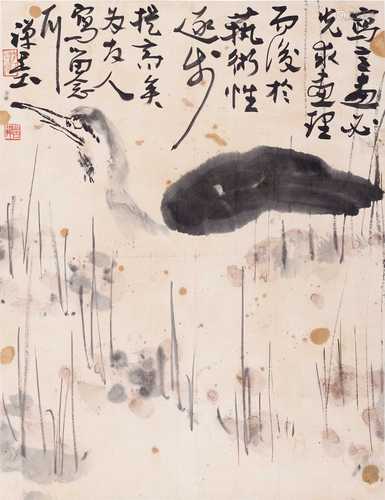 寫意畫必
先求畫理
而後於
藝術性
逐步
提高矣
為友人
寫